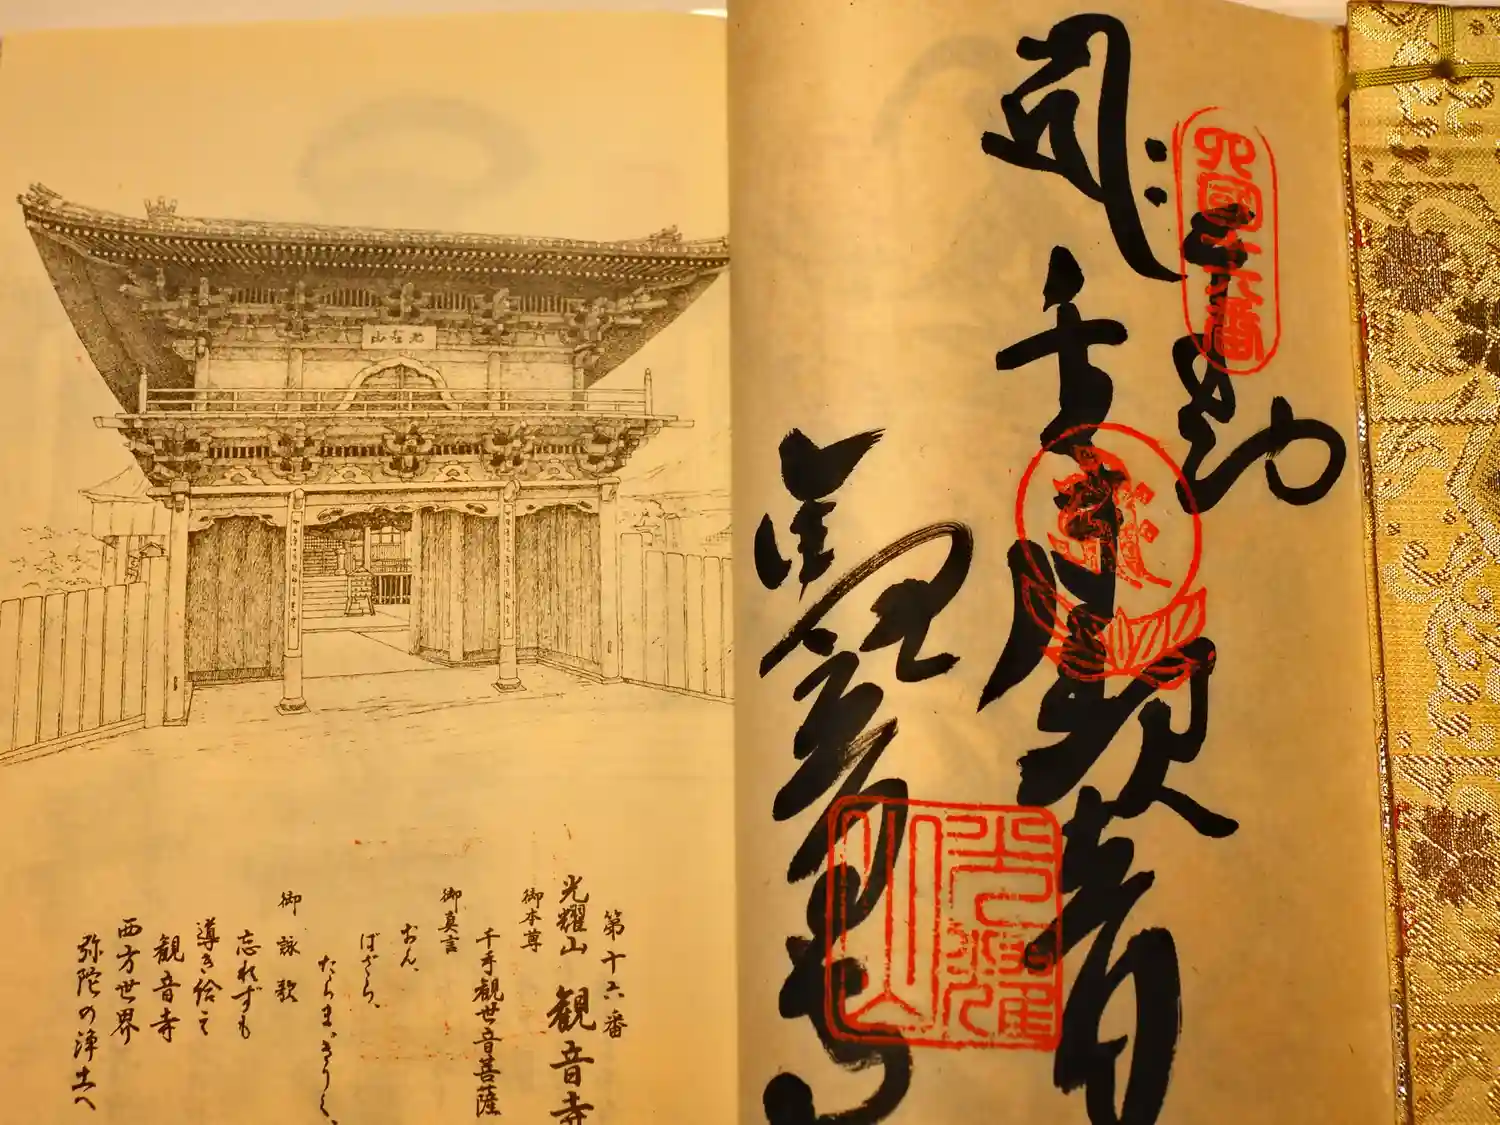 四国十六番
奉
千手観音
観音寺
光耀山
光耀山
第十六番
光耀山 観音寺
御本尊
千手観世音菩薩
御真言
おん、
ばざら、
たらま、きりく、
御詠歌
忘れずも
導き給え
観音寺
西方世界
弥陀の浄土へ